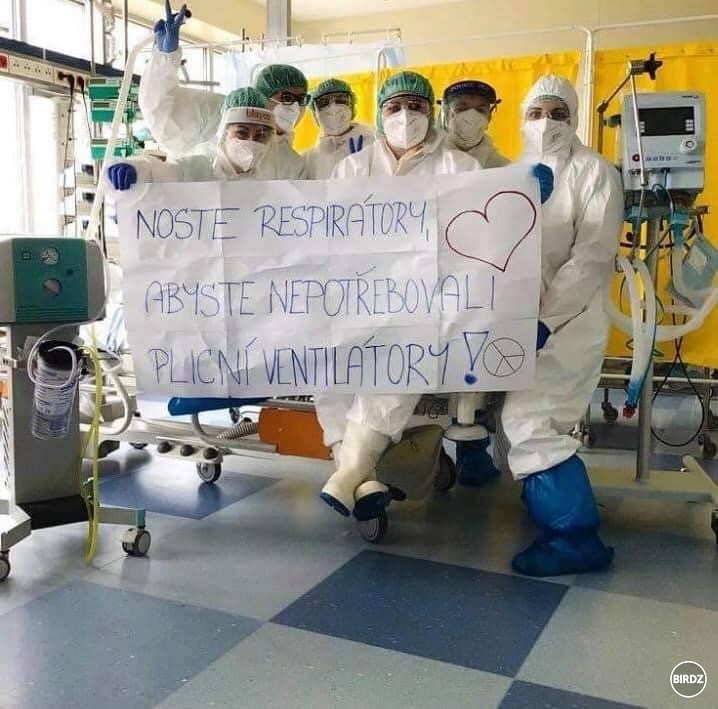 NOSTE RESPIRÁTORY,
ABYSTE NEPOTŘEBOVALI
PLICNÍ VENTILÁTORY!
BIRDZ